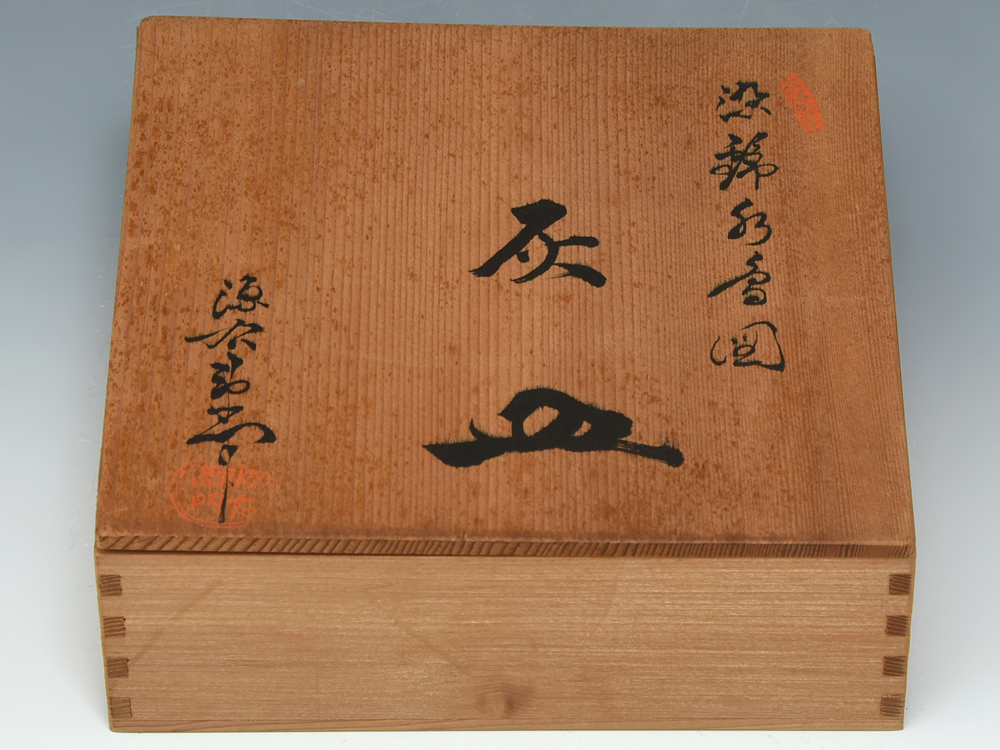 染錦水鳥図
灰皿
源右衛門